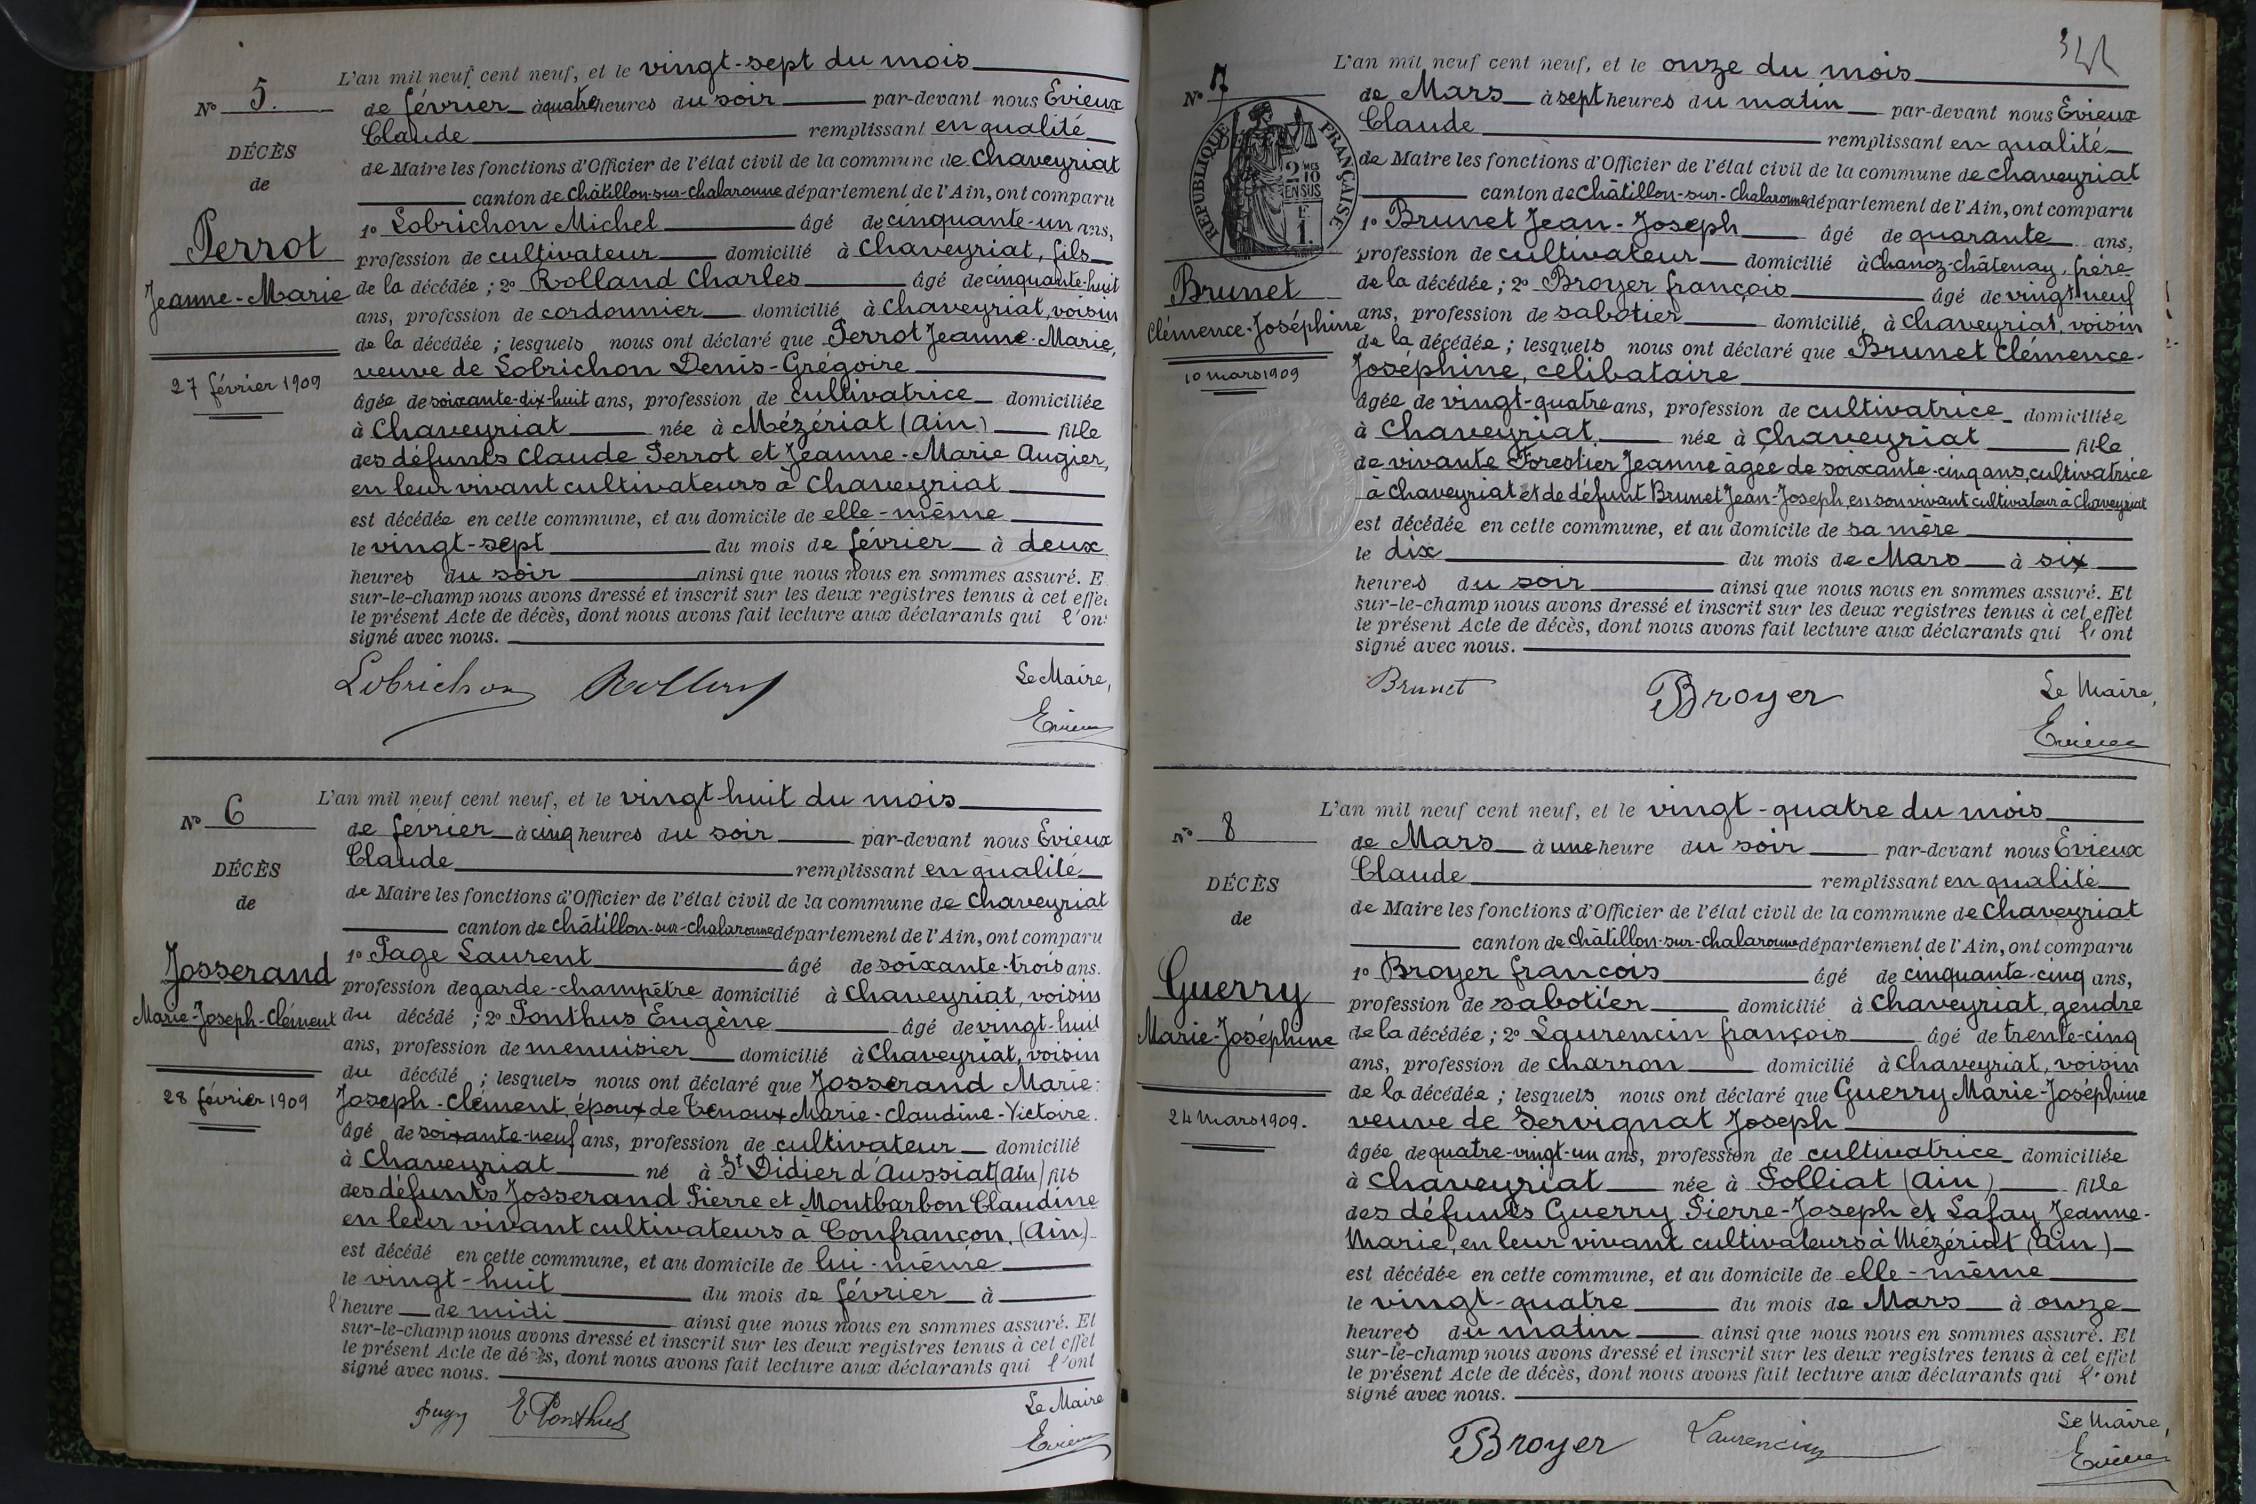 L'an mil neuf cent neuf, et le vingt-sept du mois
N° 5.
de février à quatre heures du soir par-devant nous Evieux
Claude remplissant en qualité
DÉCÈS
de Maire les fonctions d'Officier de l'état civil de la commune de Chaveyriat
de
canton de Châtillon-sur-Chalaronne département de l'Ain, ont comparu
Perrot
1° Lobrichon Michel âgé de cinquante-un ans,
profession de cultivateur domicilié à Chaveyriat, fils
Jeanne-Marie
de la décédée ; 2° Rolland Charles âgé de cinquante-huit
ans, profession de cordonnier domicilié à Chaveyriat, voisin
de la décédée ; lesquels nous ont déclaré que Perrot Jeanne-Marie,
27 février 1909
veuve de Lobrichon Denis-Grégoire
âgée de soixante-dix-huit ans, profession de cultivatrice domiciliée
à Chaveyriat née à Mézériat (Ain) fille
des défunts Claude Perrot et Jeanne-Marie Augier,
en leur vivant cultivateurs à Chaveyriat
est décédée en cette commune, et au domicile de elle-même
le vingt-sept du mois de février à deux
heures du soir ainsi que nous nous en sommes assuré. E
sur-le-champ nous avons dressé et inscrit sur les deux registres tenus à cet effe
le présent Acte de décès, dont nous avons fait lecture aux déclarants qui l'on
signé avec nous.
Lobrichon Rolland Le Maire,
Evieux
L'an mil neuf cent neuf, et le vingt-huit du mois
N° 6
de février à cinq heures du soir par-devant nous Evieux
Claude remplissant en qualité
DÉCÈS
de Maire les fonctions d'Officier de l'état civil de la commune de Chaveyriat
de
canton de Châtillon-sur-Chalaronne département de l'Ain, ont comparu
Josserand
1° Page Laurent âgé de soixante-trois ans.
profession de garde-champêtre domicilié à Chaveyriat, voisin
Marie-Joseph-Clément
du décédé ; 2° Ponthus Eugène âgé de vingt-huit
ans, profession de menuisier domicilié à Chaveyriat, voisin
du décédé ; lesquels nous ont déclaré que Josserand Marie-
28 février 1909
Joseph-Clément, époux de Tenoux Marie-Claudine-Victoire.
âgé de soixante-neuf ans, profession de cultivateur domicilié
à Chaveyriat né à St Didier d'Aussiat (Ain) fils
des défunts Josserand Pierre et Montbarbon Claudine
en leur vivant cultivateurs à Confrançon, (Ain)
est décédé en cette commune, et au domicile de lui-même
le vingt-huit du mois de février à
l'heure de midi ainsi que nous nous en sommes assuré. Et
sur-le-champ nous avons dressé et inscrit sur les deux registres tenus à cet effet
le présent Acte de décès, dont nous avons fait lecture aux déclarants qui l'ont
signé avec nous.
E Ponthus Le Maire
Evieux
L'an mil neuf cent neuf, et le onze du mois
N° 7
de Mars à sept heures du matin par-devant nous Evieux
Claude remplissant en qualité
RÉPUBLIQUE FRANÇAISE
2 MES 10 EN SUS
F 1.
de Maire les fonctions d'Officier de l'état civil de la commune de Chaveyriat
canton de Châtillon-sur-Chalaronne département de l'Ain, ont comparu
1° Brunet Jean-Joseph âgé de quarante ans,
profession de cultivateur domicilié à Chanoz-Châtenay, frère
Brunet
de la décédée ; 2° Broyer françois âgé de vingt-neuf
Clémence-Joséphine
ans, profession de sabotier domicilié à Chaveyriat, voisin
de la décédée ; lesquels nous ont déclaré que Brunet Clémence-
10 mars 1909
Joséphine, célibataire
âgée de vingt-quatre ans, profession de cultivatrice domiciliée
à Chaveyriat née à Chaveyriat fille
de vivante Forestier Jeanne âgée de soixante-cinq ans, cultivatrice
à Chaveyriat et de défunt Brunet Jean-Joseph, en son vivant cultivateur à Chaveyriat
est décédée en cette commune, et au domicile de sa mère
le dix du mois de Mars à six
heures du soir ainsi que nous nous en sommes assuré. Et
sur-le-champ nous avons dressé et inscrit sur les deux registres tenus à cet effet
le présent Acte de décès, dont nous avons fait lecture aux déclarants qui l'ont
signé avec nous.
Brunet Broyer Le Maire,
Evieux
L'an mil neuf cent neuf, et le vingt-quatre du mois
N° 8
de Mars à une heure du soir par-devant nous Evieux
Claude remplissant en qualité
DÉCÈS
de Maire les fonctions d'Officier de l'état civil de la commune de Chaveyriat
de
canton de Châtillon-sur-Chalaronne département de l'Ain, ont comparu
Guerry
1° Broyer francois âgé de cinquante-cinq ans,
profession de sabotier domicilié à Chaveyriat, gendre
Marie-Joséphine
de la décédée ; 2° Laurencin françois âgé de trente-cinq
ans, profession de charron domicilié à Chaveyriat, voisin
de la décédée ; lesquels nous ont déclaré que Guerry Marie-Joséphine
24 mars 1909.
veuve de Servignat Joseph
âgée de quatre-vingt-un ans, profession de cultivatrice domiciliée
à Chaveyriat née à Polliat (Ain) fille
des défunts Guerry Pierre-Joseph et Lafay Jeanne-
Marie, en leur vivant cultivateurs à Mézériat (Ain)
est décédée en cette commune, et au domicile de elle-même
le vingt-quatre du mois de Mars à onze
heures du matin ainsi que nous nous en sommes assuré. Et
sur-le-champ nous avons dressé et inscrit sur les deux registres tenus à cet effet
le présent Acte de décès, dont nous avons fait lecture aux déclarants qui l'ont
signé avec nous.
Broyer Laurencin Le Maire,
Evieux